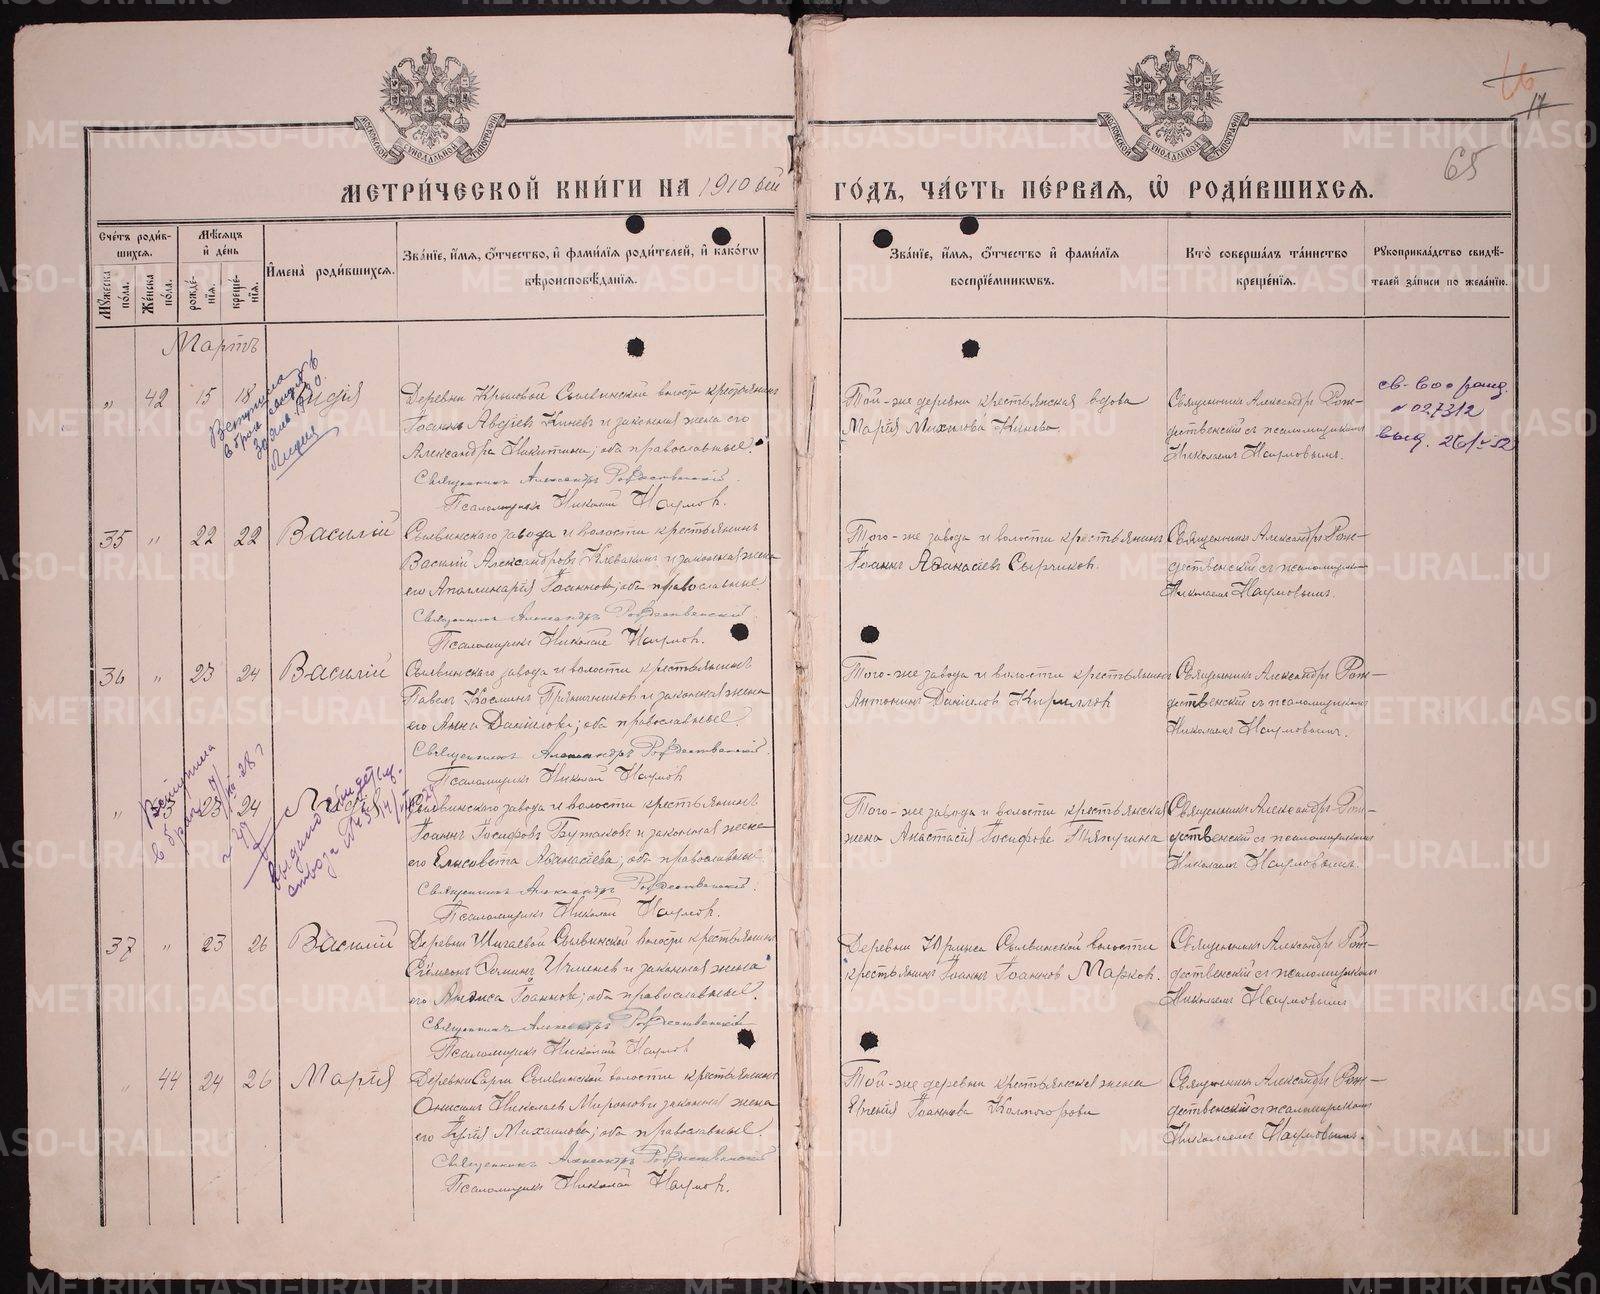 МЕТРИ́ЧЕСКОЙ КНИ́ГИ НА 1910 ый ГО́ДЪ, ЧА́СТЬ ПЕ́РВАЯ, Ѡ҆ РОДИ́ВШИХСЯ.
17
65
Сче́тъ роди́в-
шихся.
Му́жеска по́ла.
Же́нска по́ла.
Мѣ́сяцъ
и҆ де́нь
рожде́-
нїя.
креще́-
нїя.
И҆мена̀ роди́вшихся.
Зва́нїе, и҆́мя, ѻ҆́тчество, и҆ фами́лїя роди́телей, и҆ како́гѡ
вѣроисповѣ́данїя.
Зва́нїе, и҆́мя, ѻ҆́тчество и҆ фами́лїя
воспрїе́мникѡвъ.
Кто̀ соверша́лъ та́инство
креще́нїя.
Рꙋкоприкла́дство свидѣ́-
телей за́писи по жела́нїю.
Мартъ
„ 42 15 18 Лидія
Деревни Сылвинской волости крестьянинъ
Іоаннъ Авдіевъ Киневъ и законная жена его
Александра Никитина; оба православные.
Священникъ Александръ Рождественскій.
Псаломщикъ Николай Наумов.
Той-же деревни крестьянская вдова
Марія Михаилова Кинева
Священникъ Александръ Рож-
дественскій съ псаломщикомъ
Николаемъ Наумовымъ.
Вступила
в брак
1930.
Лидия
св-во о рожд.
№ 027312
выд.
35 „ 22 22 Василій
Сылвинскаго завода и волости крестьянинъ
Василій Александровъ Клевакинъ и законная жена
его Аполлинарія Іоаннова; оба православные.
Священникъ Александръ Рождественскій
Псаломщикъ Николай Наумов.
Того-же завода и волости крестьянинъ
Іоаннъ Аѳанасіевъ Сырчиковъ.
Священникъ Александръ Рож-
дественскій съ псаломщикомъ
Николаемъ Наумовымъ.
36 „ 23 24 Василій
Сылвинскаго завода и волости крестьянинъ
Павелъ Космин Пряничниковъ и законная жена
его Анна Даніилова; оба православные.
Священникъ Александръ Рождественскій.
Псаломщикъ Николай Наумов
Того-же завода и волости крестьянинъ
Антонинъ Даніилов Кириллов
Священникъ Александръ Рож-
дественскій съ псаломщикомъ
Николаемъ Наумовымъ.
„ 23 24 Лидія
Сылвинскаго завода и волости крестьянинъ
Іоаннъ Іосифовъ Бутаковъ и законная жена
его Елисавета Аѳанасіева; оба православные.
Священникъ Александръ Рождественскій.
Псаломщикъ Николай Наумов.
Того-же завода и волости крестьянская
жена Анастасія Іосифова Тяпугина
Священникъ Александръ Рож-
дественскій съ псаломщикомъ
Николаемъ Наумовымъ.
Вступила
в брак
28 г
Выдано
37 „ 23 26 Василій
Деревни Шигаевой Сылвинской волости крестьянинъ
Сѵмеонъ и законная жена
его Іоаннова; оба православные.
Священникъ Александръ Рождественскій
Псаломщикъ Николай Наумов
Деревни Юрмыса Сылвинской волости
крестьянинъ Іоаннъ Іоаннов Марков.
Священникъ Александръ Рож-
дественскій съ псаломщикомъ
Николаемъ Наумовымъ
„ 44 24 26 Марія
Деревни Сарги Сылвинской волости крестьянинъ
Онисимъ Николаев Миронов и законная жена
его Михаилова; оба православные.
Священникъ Александръ Рождественскій
Псаломщикъ Николай Наумов.
Той-же деревни крестьянская жена
Евгенія Іоаннова Колмогорова
Священникъ Александръ Рож-
дественскій съ псаломщикомъ
Николаемъ Наумовымъ.
METRIKI.GASO-URAL.RU